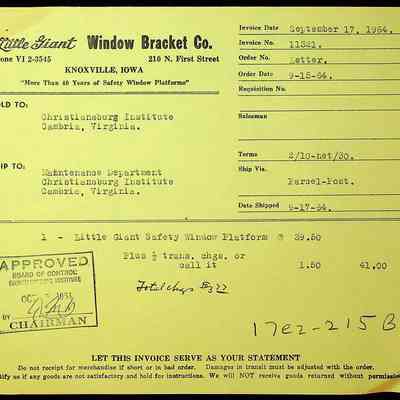 Little Giant Window Bracket Co.
Phone VI 2-3545 210 N. First Street
KNOXVILLE, IOWA
"More Than 40 Years of Safety Window Platforms"
Invoice Date September 17, 1964.
Invoice No. 11321.
Order No. Letter.
Order Date 9-15-64.
Requisition No.
SOLD TO:
Christiansburg Institute
Cambria, Virginia.
Salesman
Terms 2/10-net/30.
SHIP TO:
Maintenance Department
Christiansburg Institute
Cambria, Virginia.
Ship Via. Parcel-Post.
Date Shipped 9-17-64.
1 - Little Giant Safety Window Platform @ 39.50
Plus ½ trans. chgs. or
call it 1.50 41.00
APPROVED
BOARD OF CONTROL
CHRISTIANSBURG INSTITUTE
BY
CHAIRMAN
Total chgs
17e2-215B
LET THIS INVOICE SERVE AS YOUR STATEMENT
Do not receipt for merchandise if short or in bad order. Damages in transit must be adjusted with the order.
if any goods are not satisfactory and hold for instructions. We will NOT receive goods returned without